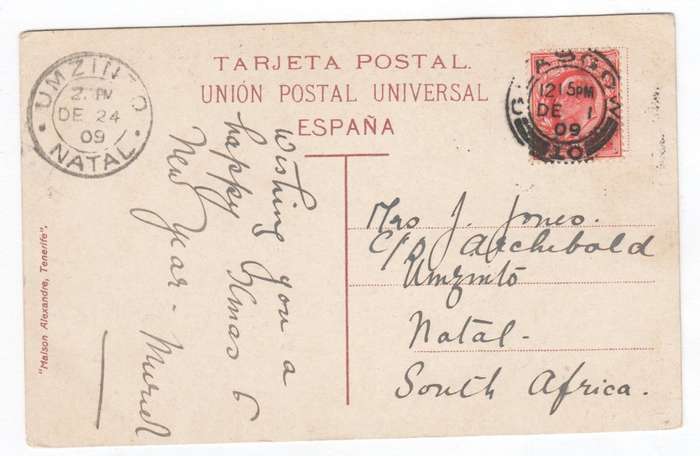 TARJETA POSTAL.
UNIÓN POSTAL UNIVERSAL
ESPAÑA
UMZINTO
2 PM
DE 24
09
NATAL
GLASGOW
12 15PM
DE 1
09
10
wishing you a
happy Xmas &
New Year - Muriel
Mrs J. Jones.
C/o Archibald
Umzinto
Natal.
South Africa.
"Maison Alexandre, Tenerife".